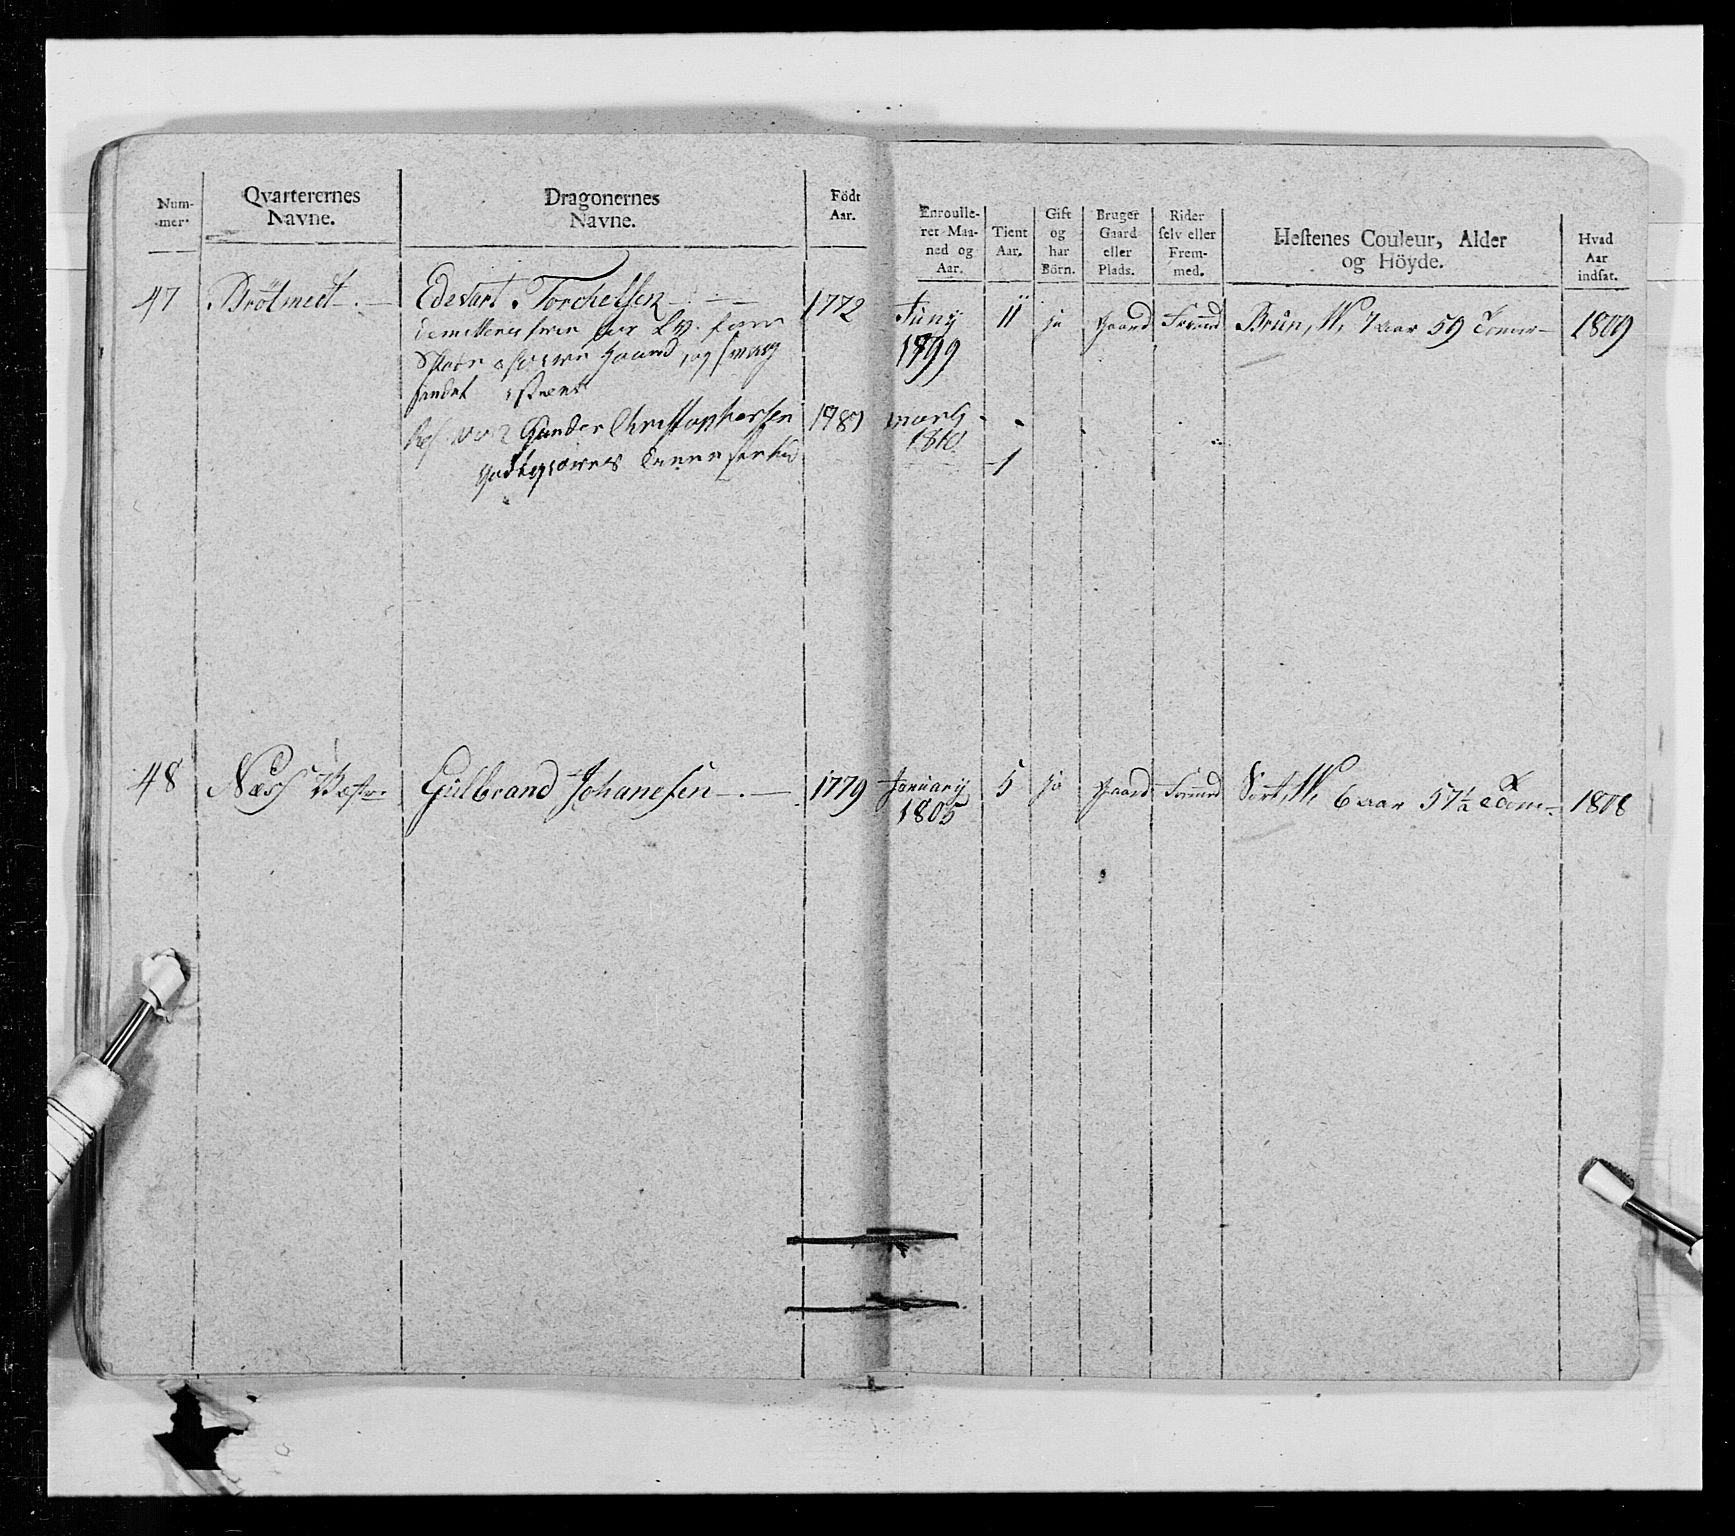 Num-
mer.
Qvarterernes
Navne.
Dragonernes
Navne.
Födt
Aar.
Enroulle-
ret Maa-
ned og
Aar.
Tient
Aar.
Gift
og
har
Börn.
Bruger
Gaard
eller
Plads.
Rider
selv eller
Frem-
med.
Hestenes Couleur, Alder
og Höyde.
Hvad
Aar
indsat.
47 Brötmedt Edevart Torchelsen 1772 Juny 11 ja gaard Fremed Brun, W. 7 aar 59 Tomer 1809
1799
gaard, og
Gunder Christophersen 1787 marti
1810
1
48 Næss Gulbrand Johanesen 1779 January 5 ja gaard Fremed Sort, W. 6 aar 57½ Tom 1808
1805